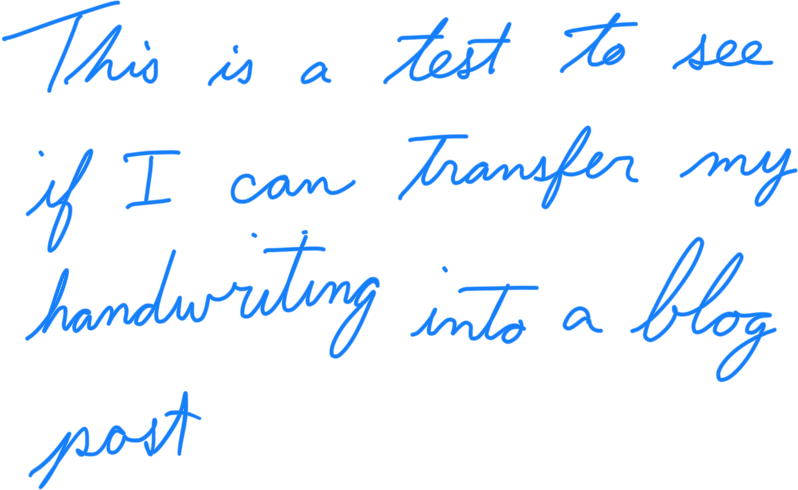 This is a test to see
if I can transfer my
handwriting into a blog
post